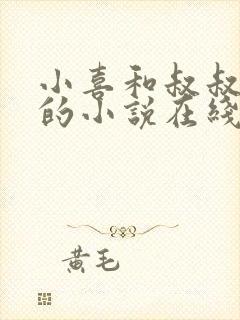 小喜和叔叔
的小説在綫
黄毛